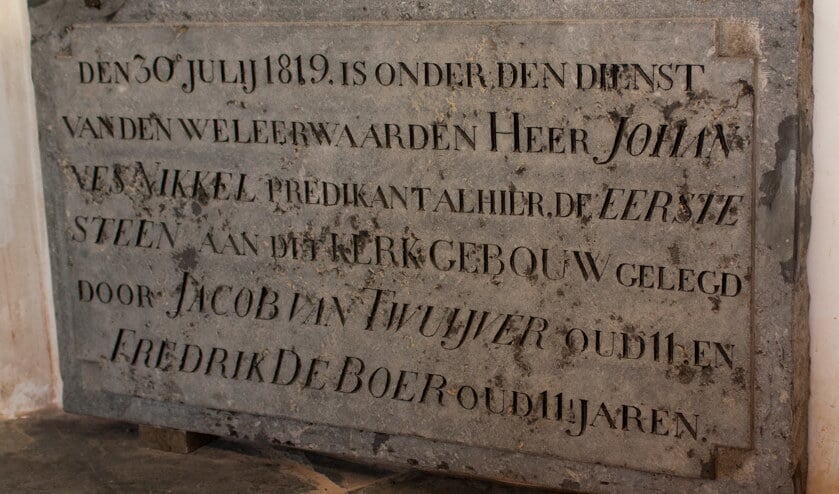 DEN 30e JULIJ 1819. IS ONDER DEN DIENST
VAN DEN WELEERWAARDEN HEER JOHAN
NES NIKKEL PREDIKANT ALHIER, DE EERSTE
STEEN AAN DIT KERK GEBOUW GELEGD
DOOR JACOB VAN TWUIJVER OUD 11 EN
FREDRIK DE BOER OUD 11 JAREN.